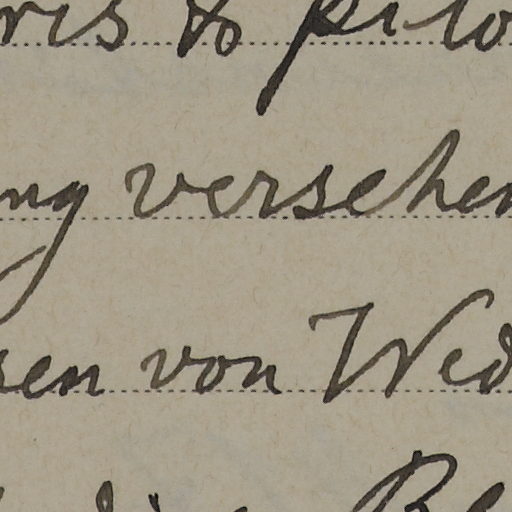 ris & pilo
ng versehen
sen von Wed